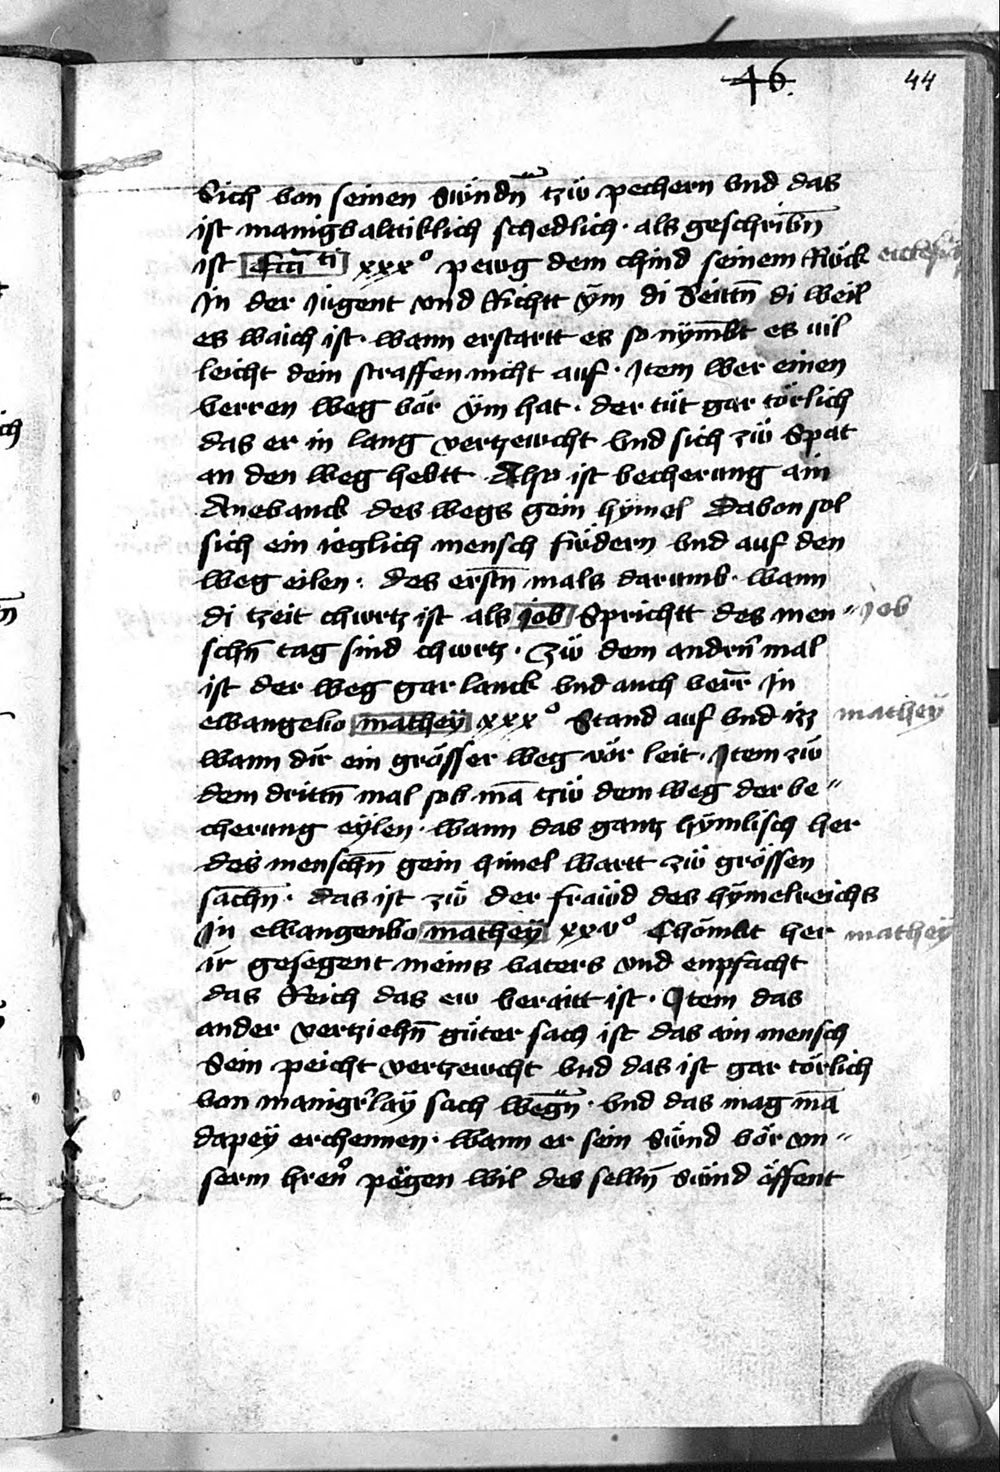 46. 44
Sich von seinen Swindn̄ tzw̋ pechern vnd das
ist manigvaltiklich schedlich · als geschribn̄
ist Eccī ti xxx° pewg dem chind seinem Rück
In der Jugent vnd Richtt ÿm di Seittn̄ di weil
es waich ist · wann erstartt es so nymbt es vil
leicht dein straffen nicht auf · Jtem wer einen
verren weg vör ÿm hat · der tüt gar törlich
das er in lang vertzewcht vnd sich zw̋ Spat
an den weg hebtt Also ist becherung ain
Anevanck des wegs gein hÿmel Davon sol
sich ein ieglich mensch füdern vnd auf den
weg eilen · des erstn̄ mals darumb · wann
di tzeit chwrtz ist als job Sprichtt des men〃 Job
schn̄ tag sind chwrtz · Zw̋ dem andrn̄ mal
ist der weg gar lanck vnd auch verr̄ Jn
ewangelio matheÿ xxx° Stand auf vnd izz matheÿ
wann dir ein grösser weg vör leit · Jtem zw̋
dem drittn̄ mal sol mā tzw̋ dem weg der be〃
cherung eÿlen · wann das gantz hÿmlisch her
des menschn̄ gein himel wartt zw̋ grössen
sachn̄ · das ist zw̋ der frawd des hÿmelreichs
Jn ewangenlio matheÿ xxv° Chömbt her matheÿ
ir gesegent meins vaters vnd enpfacht
das Reich das ew beraitt ist · Jtem das
ander vertziehn̄ güter sach ist das ain mensch
Sein peicht vertzewcht vnd das ist gar törlich
von manigr̄laÿ sach wegn̄ · vnd das mag mā
dapeÿ erchennen · wann er sein Sünd vör vn〃
serm hren̄ pëgen wil des selbn̄ Sünd öffent